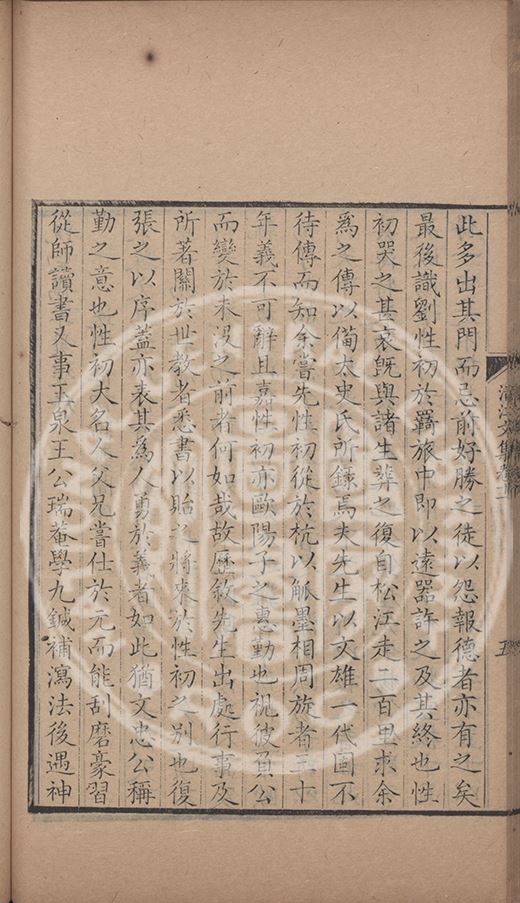 此多出其門而忌前好勝之徒以怨報德者亦有之矣
最後識劉性初於羇旅中即以遠器許之及其終也性
初哭之甚哀旣與諸生葬之復自松江走二百里求余
爲之傳以備太史氏所錄焉夫先生以文雄一代固不
待傳而知余嘗先性初從於杭以觚墨相周旋者三十
年義不可辭且嘉性初亦歐陽子之惠勤也視彼負公
而變於未没之前者何如哉故歷敘先生出處行事及
所著關於世教者悉書以貽之將來於性初之別也復
張之以序蓋亦表其爲人勇於義者如此猶文忠公稱
勤之意也性初大名人父兄嘗仕於元而能刮磨豪習
從師讀書又事玉泉王公瑞菴學九鍼補瀉法後遇神
江文集卷
五